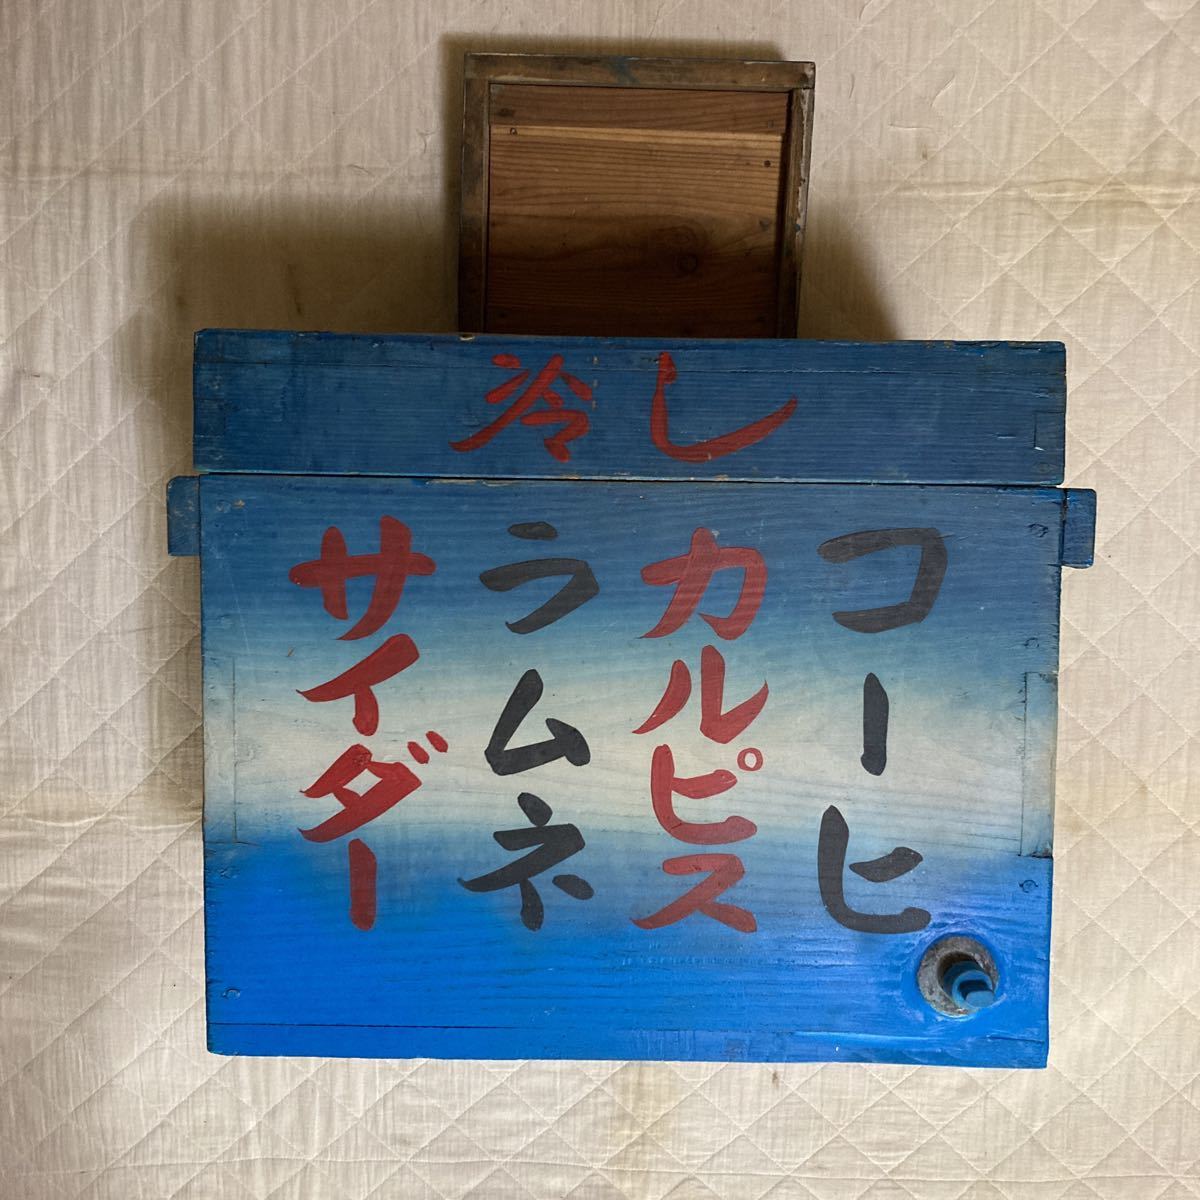 冷し
コーヒ
カルピス
ラムネ
サイダー